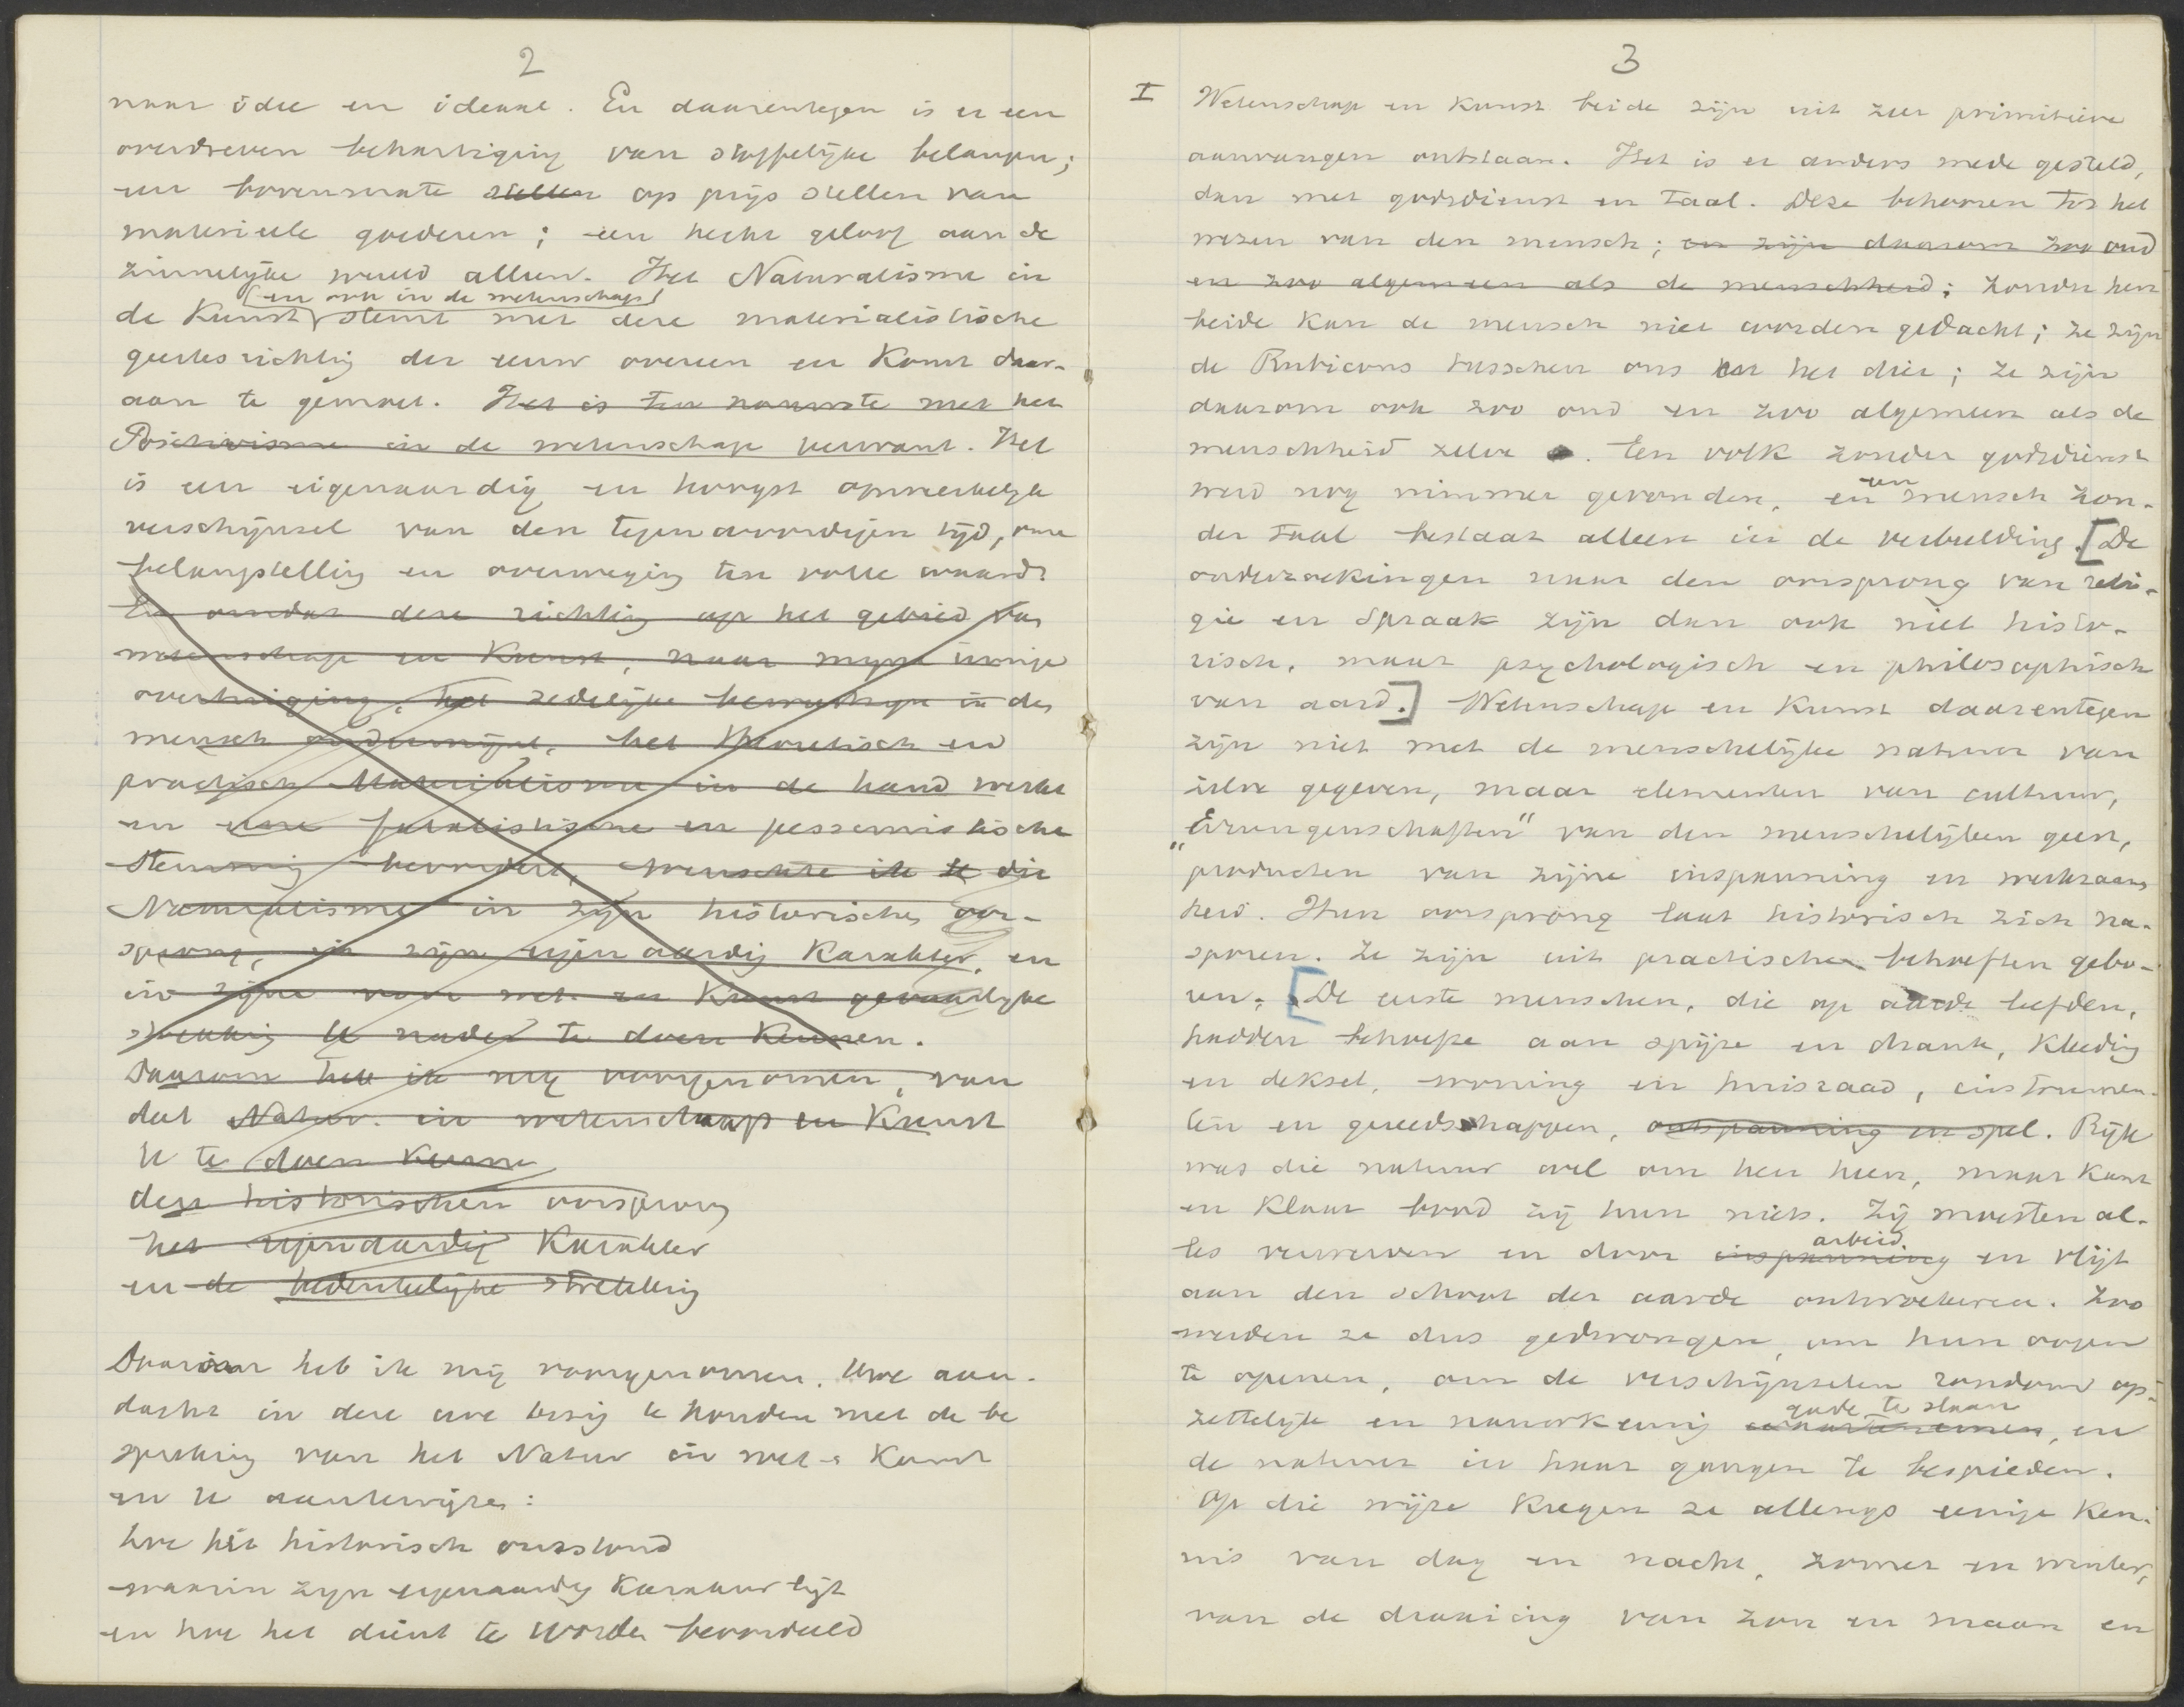 2
naar idee en ideaal. En daarentegen is er een
overdreven behartiging van stoffelijke belangen;
een bovenmate stellen op prijs stellen van
materieele goederen; een hecht geloof aan de
zinnelijke wereld alleen. Het Naturalisme in
(en ook in de wetenschap)
de Kunst stemt met deze materialistische
geestesrichting der eeuw overeen en komt daar-
aan te gemoet. Het is ten naauwste met het
Positivisme in de wetenschap verwant. Het
is een eigenaardig en hoogst opmerkelijk
verschijnsel van den tegenwoordigen tijd, onze
belangstelling en overweging ten volle waard.
En omdat deze richting op het gebied van
wetenschap en Kunst, naar mijne innige
overtuiging, het zedelijke bewustzijn in den
mensch ondermijnt, het theoretisch en
practisch Materialisme in de hand werkt
en eene fatalistische en pessimistische
stemming bevordert, wenschte ik U dit
Naturalisme in zijn historischen oor-
sprong, in zijn eigenaardig Karakter, en
in zijne voor wet. en Kunst gevaarlijke
strekking U nader te doen kennen.
Daarom heb ik mij voorgenomen, van
dat Natur. in wetenschap en Kunst
U te doen kennen
den historischen oorsprong
het eigenaardig Karakter
en de bedenkelijke strekking
Daarom heb ik mij voorgenomen, Uwe aan-
dacht in deze ure bezig te houden met de be
spreking van het Natur in wet. & Kunst
en U aan te wijzen:
hoe het historisch ontstond
waarin zijn eigenaardig Karakter ligt
en hoe het dient te worden beoordeeld
3
I Wetenschap en Kunst beide zijn uit zeer primitieve
aanvangen ontstaan. Het is er anders mede gesteld,
dan met godsdienst en taal. Deze behooren tot het
wezen van den mensch; en zijn daarom zoo oud
en zoo algemeen als de menschheid; zonder hen
beide kan de mensch niet worden gedacht; ze zijn
de Rubicons tusschen ons en het dier; ze zijn
daarom ook zoo oud en zoo algemeen als de
menschheid zelve. Een volk zonder godsdienst
een
werd nog nimmer gevonden, en mensch zon-
der taal bestaat alleen in de verbeelding. [De
onderzoekingen naar den oorsprong van reli-
gie en Spraak zijn dan ook niet histo-
risch, maar psychologisch en philosophisch
van aard.] Wetenschap en Kunst daarentegen
zijn niet met de menschelijke natuur van
zelve gegeven, maar elementen van cultuur,
„Errungenschaften" van den menschelijken geest,
producten van zijne inspanning en werkzaam
heid. Hun oorsprong laat historisch zich na-
sporen. Ze zijn uit practische behoeften gebo-
ren. [De eerste menschen, die op aarde leefden,
hadden behoefte aan spijze en drank, kleeding
en deksel, woning en huisraad, instrumen-
ten en gereedschappen, ontspanning en spel. Rijk
was die natuur wel om hen heen, maar kant
en klaar bood zij hun niets. Zij moesten al-
arbeid
les verwerven en door inspanning en vlijt
aan den schoot der aarde ontworstelen. Zoo
werden ze dus gedwongen, om hun oogen
te openen, om de verschijnselen rondom op-
gade te slaan
zettelijk en nauwkeurig waar te nemen, en
de natuur in haar gangen te bespieden.
Op die wijze kregen ze allengs eenige ken-
nis van dag en nacht, zomer en winter,
van de draaiing van zon en maan en